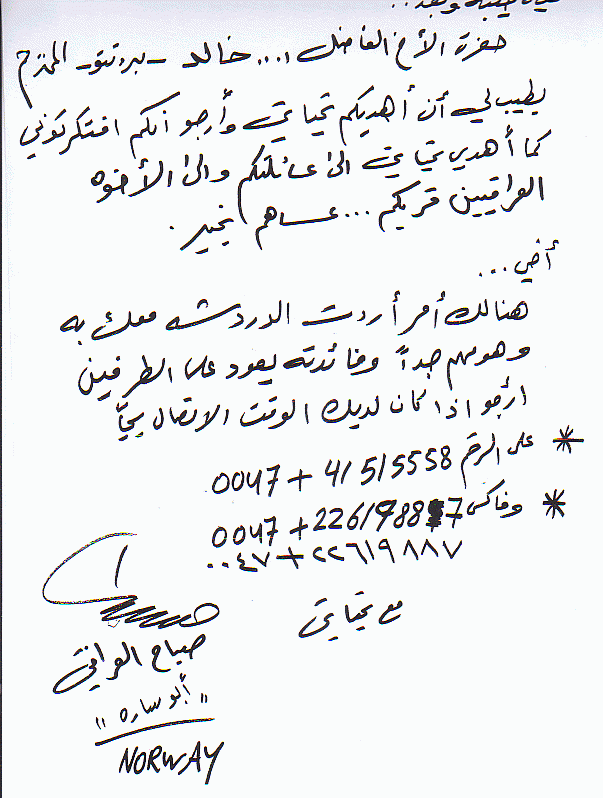 طيبة وبعد..
حضرة الأخ الفاضل .... خالد - برونتو - المحترم
يطيب لي أن أهديكم تحياتي وأرجو انكم افتكرتوني
كما أهدي تحياتي الى عائلتكم والى الأخوه
العراقيين قربكم ... عساهم بخير .
أخي ...
هنالك أمر أردت الدردشه معك به
وهو مهم جداً وفائدته يعود على الطرفين
ارجو اذا كان لديك الوقت الاتصال بي
* على الرقم 41515558 + 0047
* وفاكس 22619887 + 0047
٠٠٤٧ + ٢٢٦١٩٨٨٧
مع تحياتي
صباح العراقي
"أبو ساره"
NORWAY